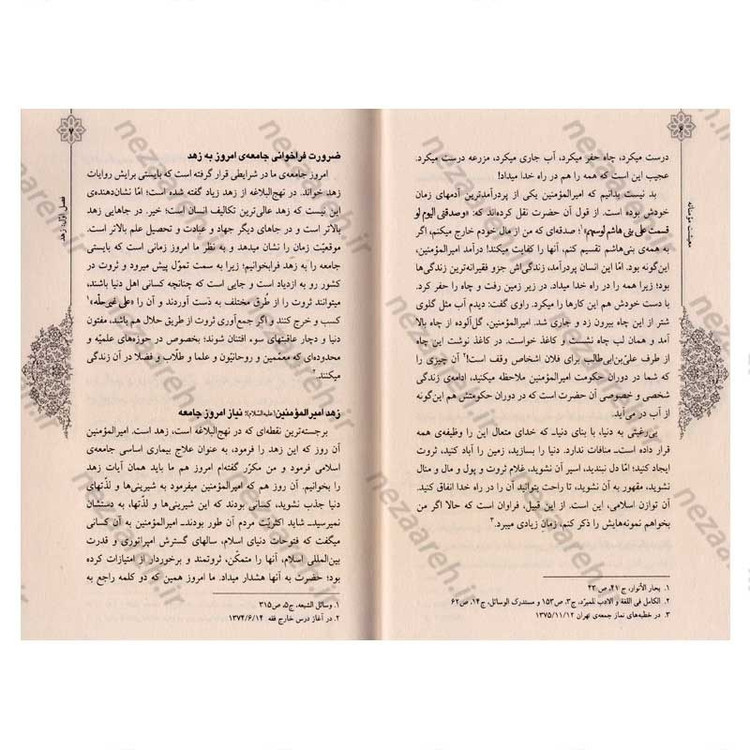 معیشت مؤمنانه
درست میکرد، چاه حفر میکرد، آب جاری میکرد، مزرعه درست میکرد.
عجیب این است که همه را هم در راه خدا میداد!
بد نیست بدانیم که امیرالمؤمنین یکی از پردرآمدترین آدمهای زمان
خودش بوده است. از قول آن حضرت نقل کرده‌اند که: «وصدقتی الیوم لو
قسمت علی بنی هاشم لوسعهم»؛۱ صدقه‌ای که من از مال خودم خارج میکنم، اگر
به همه‌ی بنی‌هاشم تقسیم کنم، آنها را کفایت میکند! درآمد امیرالمؤمنین،
این‌گونه بود. امّا این انسان پردرآمد، زندگی‌اش جزو فقیرانه‌ترین زندگی‌ها
بود؛ زیرا همه را در راه خدا میداد. در زیر زمین رفت و چاه را حفر کرد.
با دست خودش هم این کارها را میکرد. راوی گفت: دیدم آب مثل گلوی
شتر از این چاه بیرون زد و جاری شد. امیرالمؤمنین، گل‌آلوده از چاه بالا
آمد و همان لب چاه نشست و کاغذ خواست. در کاغذ نوشت این چاه
از طرف علی‌بن‌ابی‌طالب برای فلان اشخاص وقف است!۲ آن چیزی را
که شما در دوران حکومت امیرالمؤمنین ملاحظه میکنید، ادامه‌ی زندگی
شخصی و خصوصی آن حضرت است که در دوران حکومتش هم این‌گونه
از آب در می‌آید.
بی‌رغبتی به دنیا، با بنای دنیا۔ که خدای متعال این را وظیفه‌ی همه
قرار داده است۔ منافات ندارد. دنیا را بسازید، زمین را آباد کنید، ثروت
ایجاد کنید؛ امّا دل نبندید، اسیر آن نشوید، غلام ثروت و پول و مال و منال
نشوید، مقهور به آن نشوید؛ تا راحت بتوانید آن را در راه خدا انفاق کنید.
آن توازن اسلامی، این است. از این قبیل، فراوان است که حالا اگر من
بخواهم نمونه‌هایش را ذکر کنم، زمان زیادی میبرد.۳
۱. بحار الأنوار، ج ۴۱، ص ۴۳
۲. الکامل فی اللغة و الادب للمبرّد، ج۳، ص ۱۵۳ و مستدرک الوسائل، ج۱۴، ص ۶۲
۳. در خطبه‌های نماز جمعه‌ی تهران ۱۳۷۵/۱۱/۱۲
فصل اوّل: زهد
ضرورت فراخوانی جامعه‌ی امروز به زهد
امروز جامعه‌ی ما در شرایطی قرار گرفته است که بایستی برایش روایات
زهد خواند. در نهج‌البلاغه از زهد زیاد گفته شده است؛ امّا نشان‌دهنده‌ی
این نیست که زهد عالی‌ترین تکالیف انسان است؛ خیر. در جاهایی زهد
بالاتر است و در جاهای دیگر جهاد و عبادت و تحصیل علم بالاتر است.
موقعیّت زمان را نشان میدهد و به نظر ما امروز زمانی است که بایستی
جامعه را به زهد فرابخوانیم؛ زیرا به سمت تموّل پیش میرود و ثروت در
کشور رو به ازدیاد است و جایی است که چنانچه کسانی اهل دنیا باشند،
میتوانند ثروت را از طرق مختلف به دست آوردند و آن را «علی غیر حلّه»۱
کسب و خرج کنند و اگر جمع‌آوری ثروت از طریق حلال هم باشد، مفتون
دنیا و دچار عاقبتهای سوء افتنان شوند؛ بخصوص در حوزه‌های علمیّه و
محدوده‌ای که معمّمین و روحانیّون و علما و طلّاب و فضلا در آن زندگی
میکنند.۲
زهد امیرالمؤمنین(علیه‌السّلام)؛ نیاز امروز جامعه
برجسته‌ترین نقطه‌ای که در نهج‌البلاغه است، زهد است. امیرالمؤمنین
آن روز که این زهد را فرمود، به عنوان علاج بیماری اساسی جامعه‌ی
اسلامی فرمود و من مکرّر گفته‌ام امروز هم ما باید همان آیات زهد
را بخوانیم. آن روز هم که امیرالمؤمنین میفرمود به شیرینی‌ها و لذّتهای
دنیا جذب نشوید، کسانی بودند که این شیرینی‌ها و لذّتها، به دستشان
نمیرسید۔ شاید اکثریّت مردم آن طور بودند۔ امیرالمؤمنین به آن کسانی
میگفت که فتوحات دنیای اسلام، سالهای گسترش امپراتوری و قدرت
بین‌المللی اسلام، آنها را متمکّن، ثروتمند و برخوردار از امتیازات کرده
بود؛ حضرت به آنها هشدار میداد. ما امروز همین که دو کلمه راجع به
۱. وسائل الشیعه، ج۵، ص ۳۱۵
۲. در آغاز درس خارج فقه ۱۳۷۴/۶/۱۴
nezaareh.ir